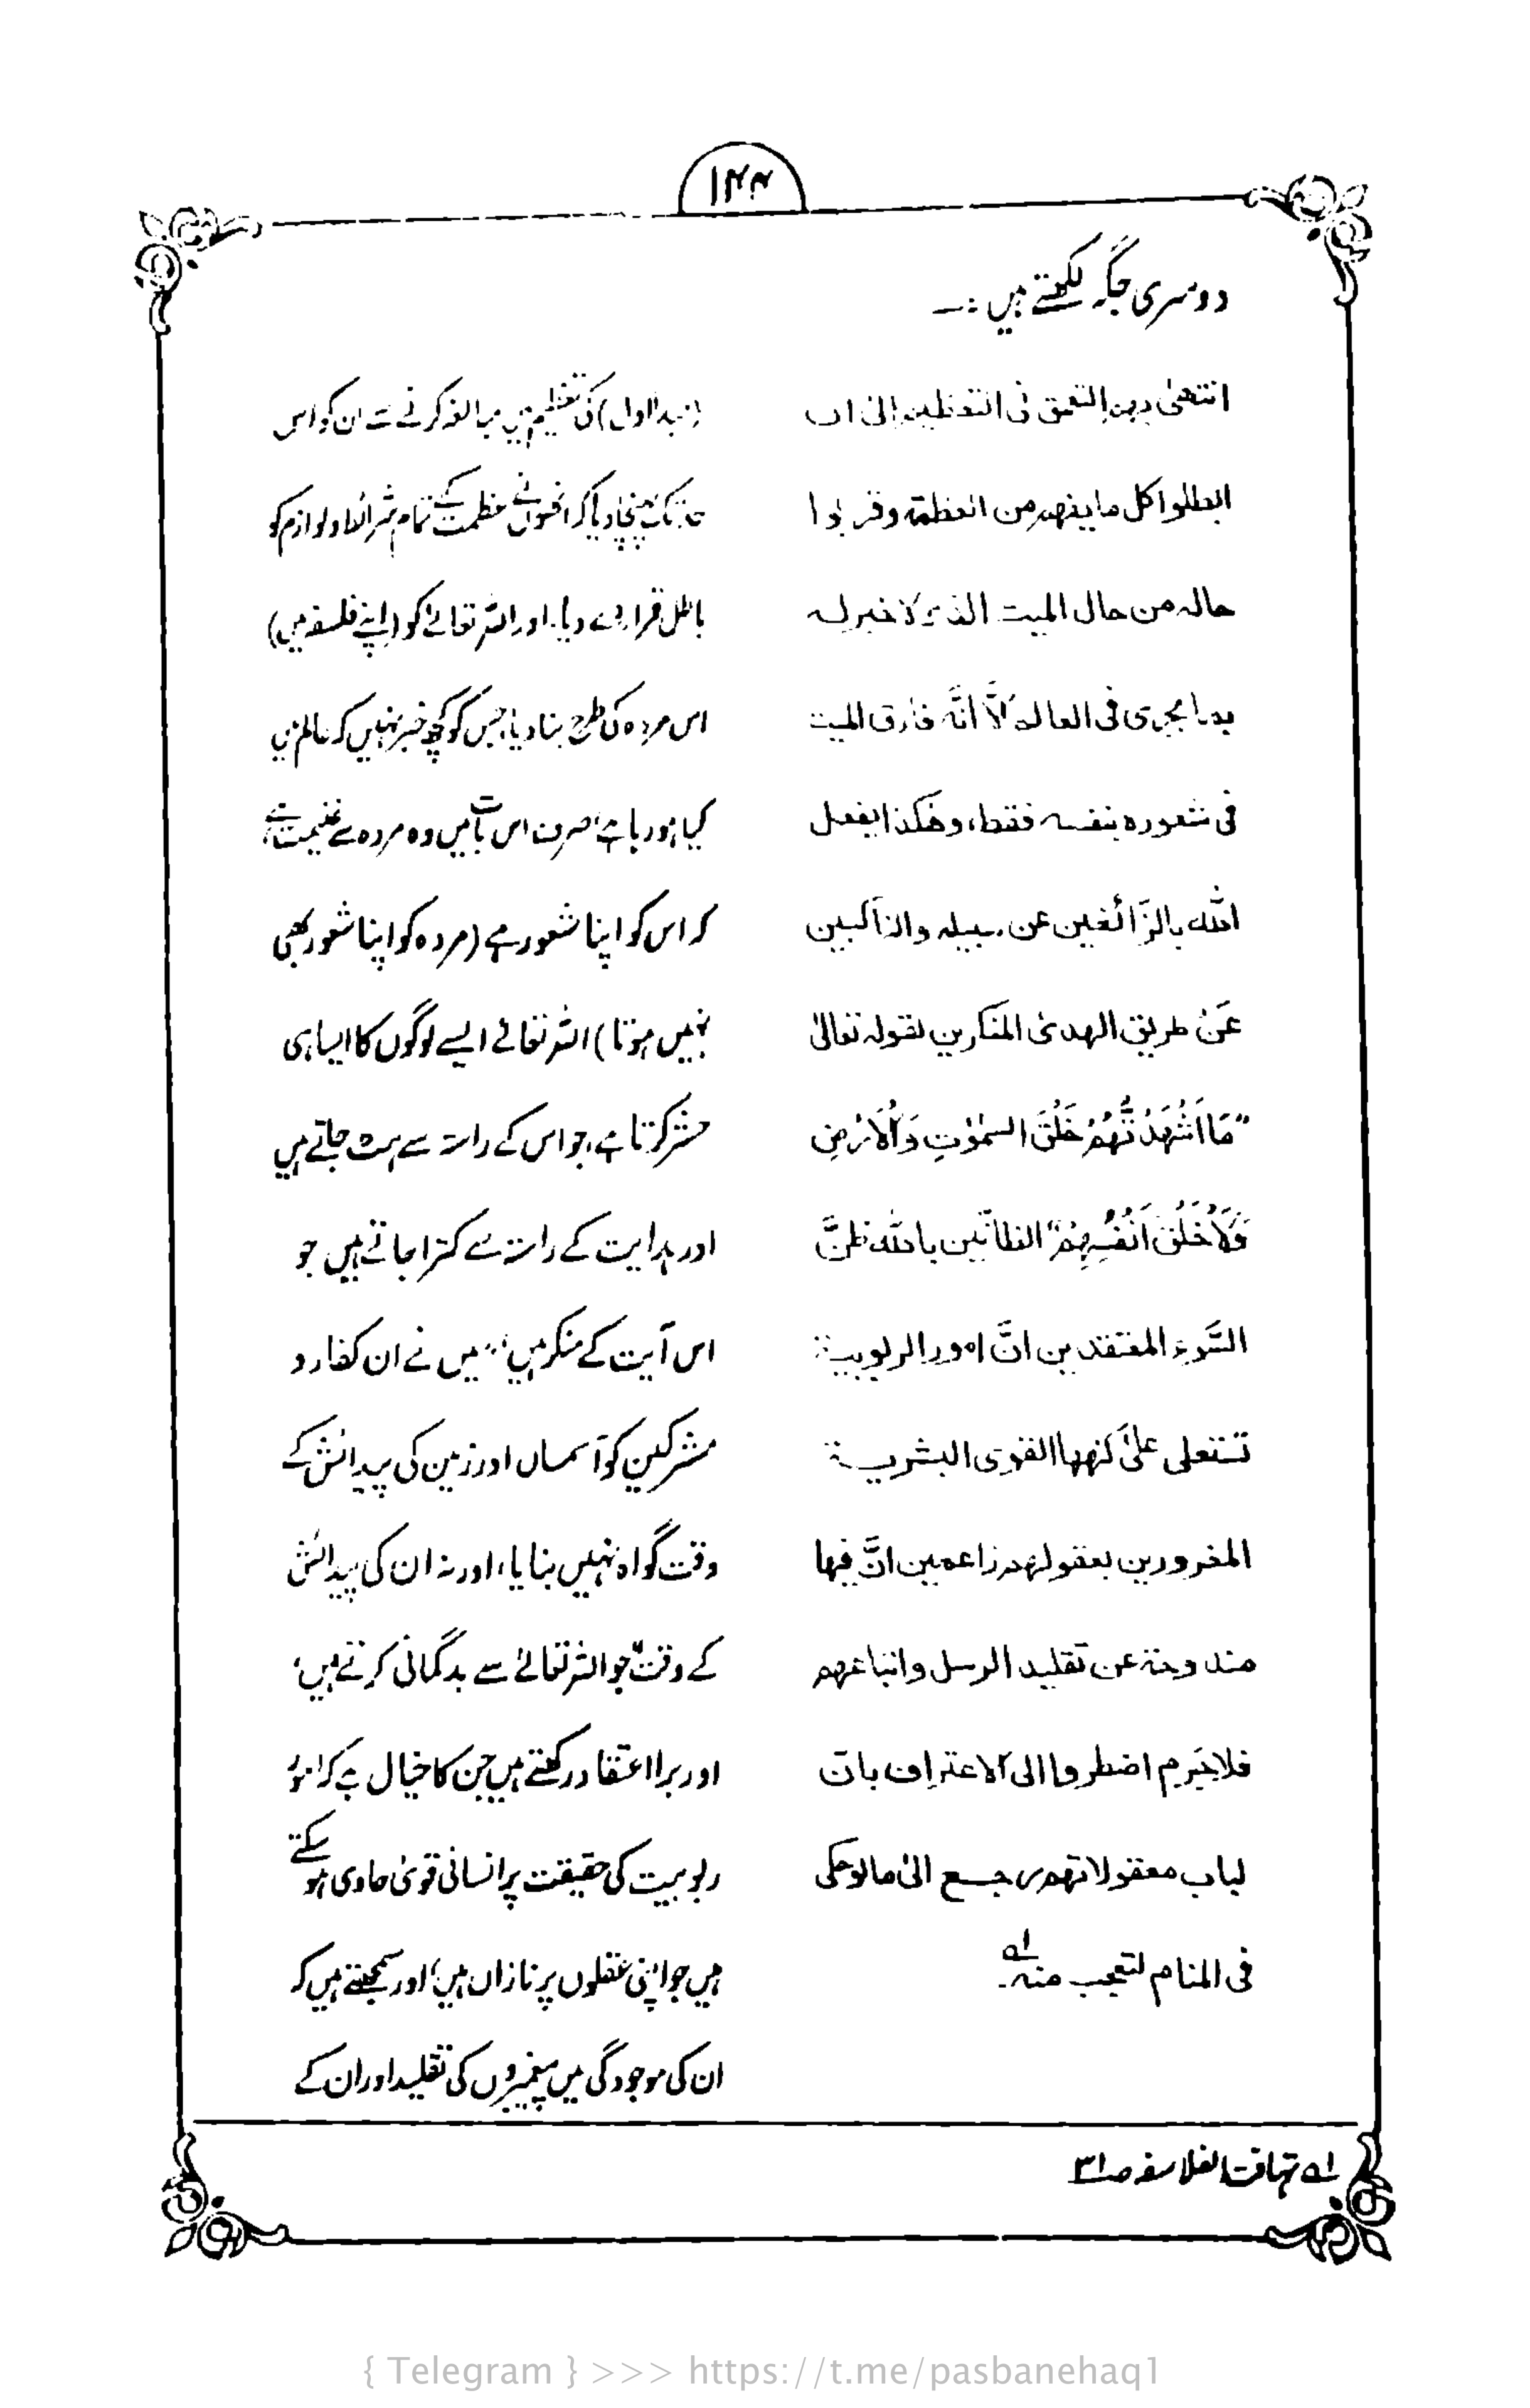 ۱۲۴
دوسری جگہ لکھتے ہیں :۔
انتھیٰ بھم التعمق فی التعظیم الیٰ ان
ابطلوا کل ما یفھم من العظمۃ وقربوا
حالہ من حال المیت الذی لا خبر لہ
بما یجری فی العالم الّا انّہ فارق المیت
فی شعورہ بنفسہ فقط، وھکذا یفعل
اللہ بالزّائغین عن سبیلہ والناکبین
عَنْ طریق الھدیٰ المنکرین لقولہ تعالیٰ
"مَا اَشْهَدْتُّهُمْ خَلْقَ السَّمٰوٰتِ وَالْاَرْضِ
وَلَا خَلْقَ اَنْفُسِهِمْ" الظانّین باللہ ظنَّ
السَّوءِ المعتقدین انَّ امور الربوبیۃ
تستعلی علیٰ کنھھا القوی البشریۃ
المغرورین بعقولھم زاعمین انَّ فیھا
مندوحۃ عن تقلید الرسل واتباعھم
فلا جَرم اضطروا الی الاعتراف بان
لباب معقولاتھم رجع الیٰ ما لو حکی
فی المنام لتعجب منہ۔ لہ
(مبدا اول) کی تعظیم میں مبالغہ کرنے نے ان کو اس
حد تک پہنچا دیا کہ انھوں نے عظمت کے تمام شرائط ولوازم کو
باطل قرار دے دیا، اور اللہ تعالےٰ کو (اپنے فلسفہ میں)
اس مردہ کی طرح بنا دیا، جس کو کچھ خبر نہیں کہ عالم میں
کیا ہو رہا ہے، صرف اس بات میں وہ مردہ سے غنیمت ہے،
کہ اس کو اپنا شعور ہے (مردہ کو اپنا شعور بھی
نہیں ہوتا) اللہ تعالےٰ ایسے لوگوں کا ایسا ہی
حشر کرتا ہے، جو اس کے راستہ سے ہٹ جاتے ہیں
اور ہدایت کے راستہ سے کترا جاتے ہیں جو
اس آیت کے منکر ہیں، "میں نے ان کفار و
مشرکین کو آسمان اور زمین کی پیدائش کے
وقت گواہ نہیں بنایا، اور نہ ان کی پیدائش
کے وقت" جو اللہ تعالےٰ سے بدگمانی کرتے ہیں،
اور برا اعتقاد رکھتے ہیں جن کا خیال ہے کہ امور
ربوبیت کی حقیقت پر انسانی قویٰ حاوی ہو سکتے
ہیں جو اپنی عقلوں پر نازاں ہیں، اور سمجھتے ہیں کہ
ان کی موجودگی میں پیغمبروں کی تقلید اور ان کے
لہ تہافت الفلاسفہ ص۳۱
{ Telegram } >>> https://t.me/pasbanehaq1